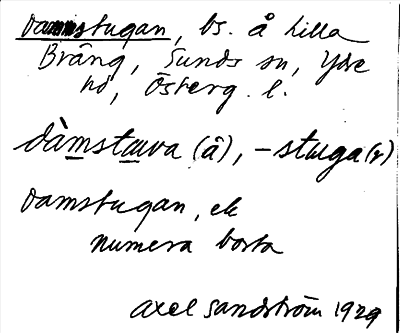 Damstugan, bs. å Lilla
Bräng, Sunds sn, Ydre
hd, Österg. l.
dàmstæva (â), -stuga(r)
Damstugan, ek
numera borta
Axel Sandström 1929